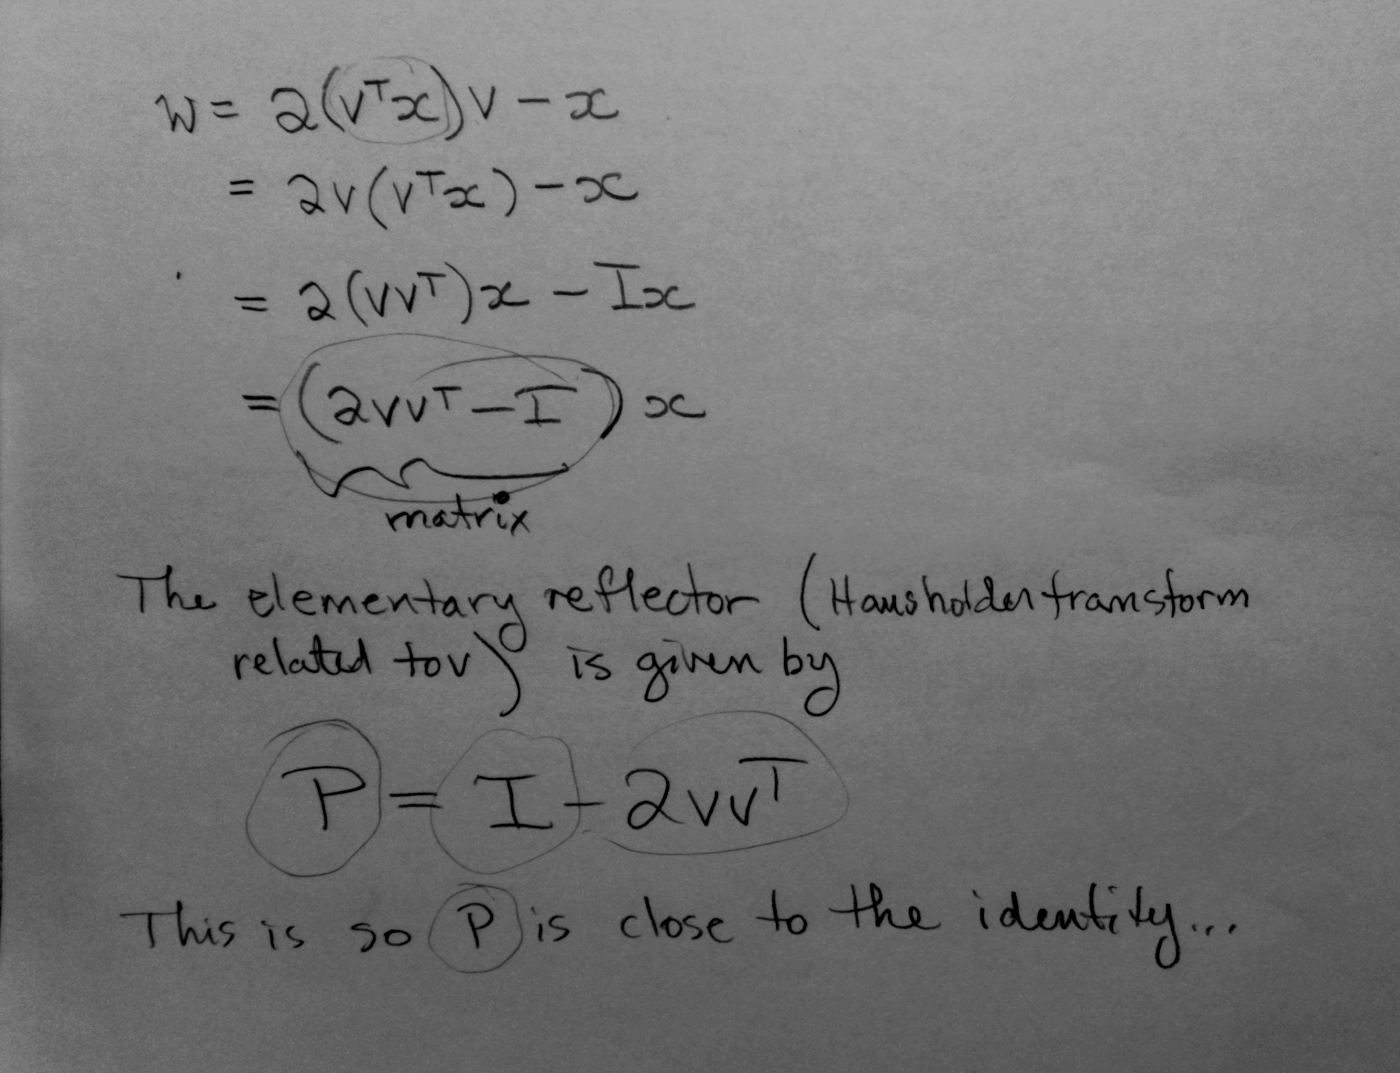 w = 2(vᵀx)v − x
= 2v(vᵀx) − x
= 2(vvᵀ)x − Ix
= (2vvᵀ − I)x
matrix
The elementary reflector (Hausholder transform
related to v) is given by
P = I − 2vvᵀ
This is so P is close to the identity...